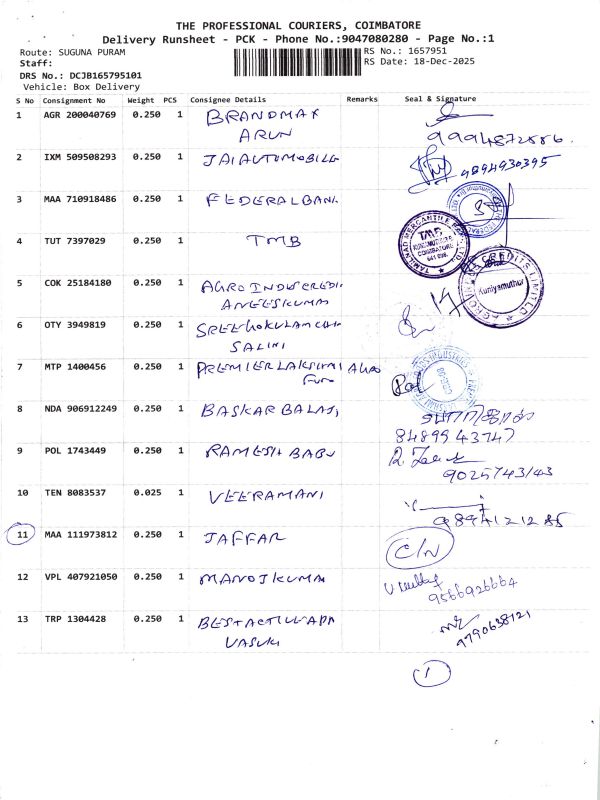 THE PROFESSIONAL COURIERS, COIMBATORE
Delivery Runsheet - PCK - Phone No.:9047080280 - Page No.:1
Route: SUGUNA PURAM
RS No.: 1657951
Staff:
RS Date: 18-Dec-2025
DRS No.: DCJB165795101
Vehicle: Box Delivery
S No Consignment No Weight PCS Consignee Details Remarks Seal & Signature
1 AGR 200040769 0.250 1 BRANDMAX
ARUN
9994872586.
2 IXM 509508293 0.250 1 JAIAUTOMOBILE
9894930395
3 MAA 710918486 0.250 1 FEDERALBANK
4 TUT 7397029 0.250 1 TMB
TAMILNAD MERCANTILE BANK LTD.
TMB
KUNIAMUTHUR
COIMBATORE
641 008.
5 COK 25184180 0.250 1 AGROINDUSCREDIT
ANEESKUMAR
CREDITS LIMITED
Kuniyamuthur
6 OTY 3949819 0.250 1 SREEGOKULAMCHI
SALINI
7 MTP 1400456 0.250 1 PREMIERLAKSHMI AGRO
8 NDA 906912249 0.250 1 BASKAR BALAJI
8489943747
9 POL 1743449 0.250 1 RAMESH BABU
9025743143
10 TEN 8083537 0.025 1 VEERAMANI
9894121285
11 MAA 111973812 0.250 1 JAFFAR
C/N
12 VPL 407921050 0.250 1 MANOJKUMAR
9566926664
13 TRP 1304428 0.250 1
VASUKI
9790638121
1